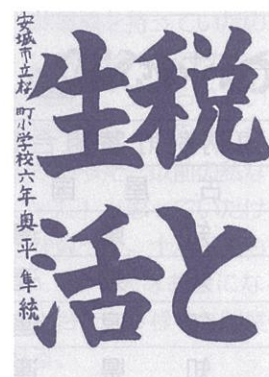 税と
生活
安城市立桜町小学校六年奥平隼統